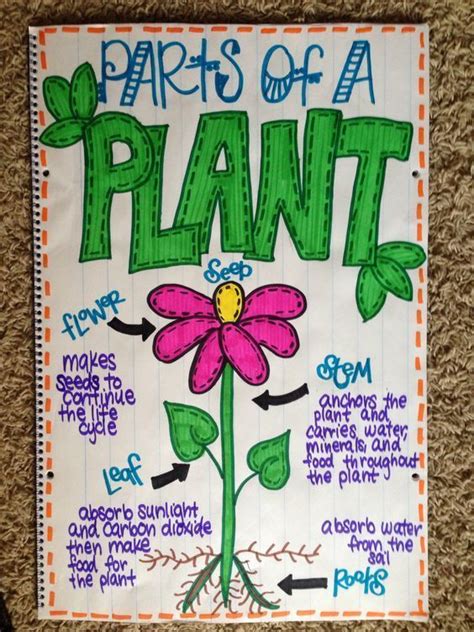 PARTS OF A
PLANT
Seed
flower
makes
seeds to
continue
the life
cycle
Stem
anchors the
plant and
carries water,
minerals, and
food throughout
the plant
Leaf
absorb sunlight
and carbon dioxide
then make
food for
the plant
absorb water
from the
soil
Roots